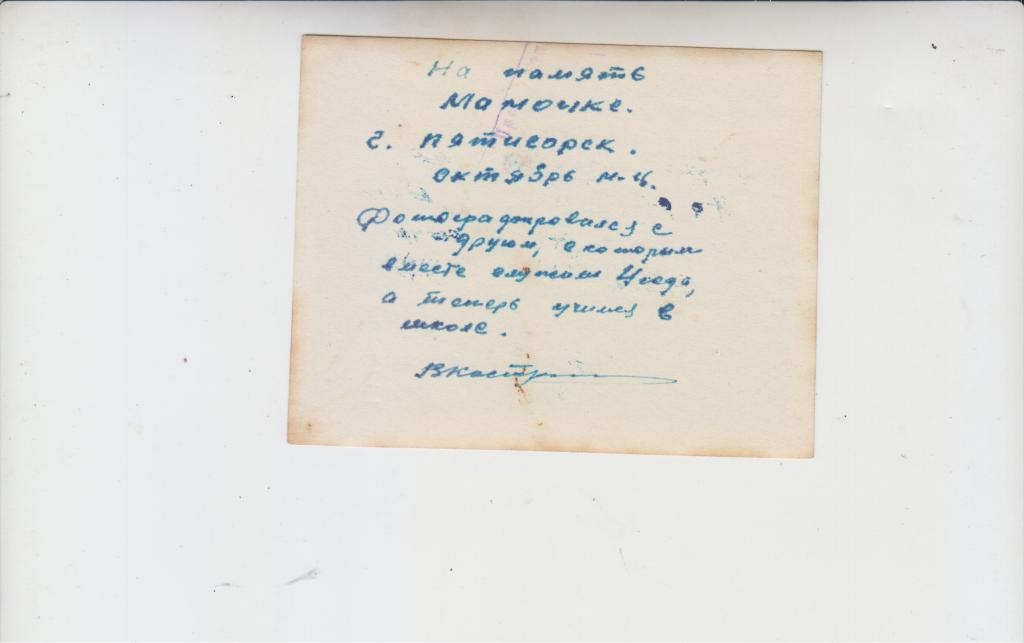 На память
Мамочке.
г. Пятигорск.
октябрь м-ц.
Фотографировался с
другом, с которым
вместе служим 4 года,
а теперь учимся в
школе.